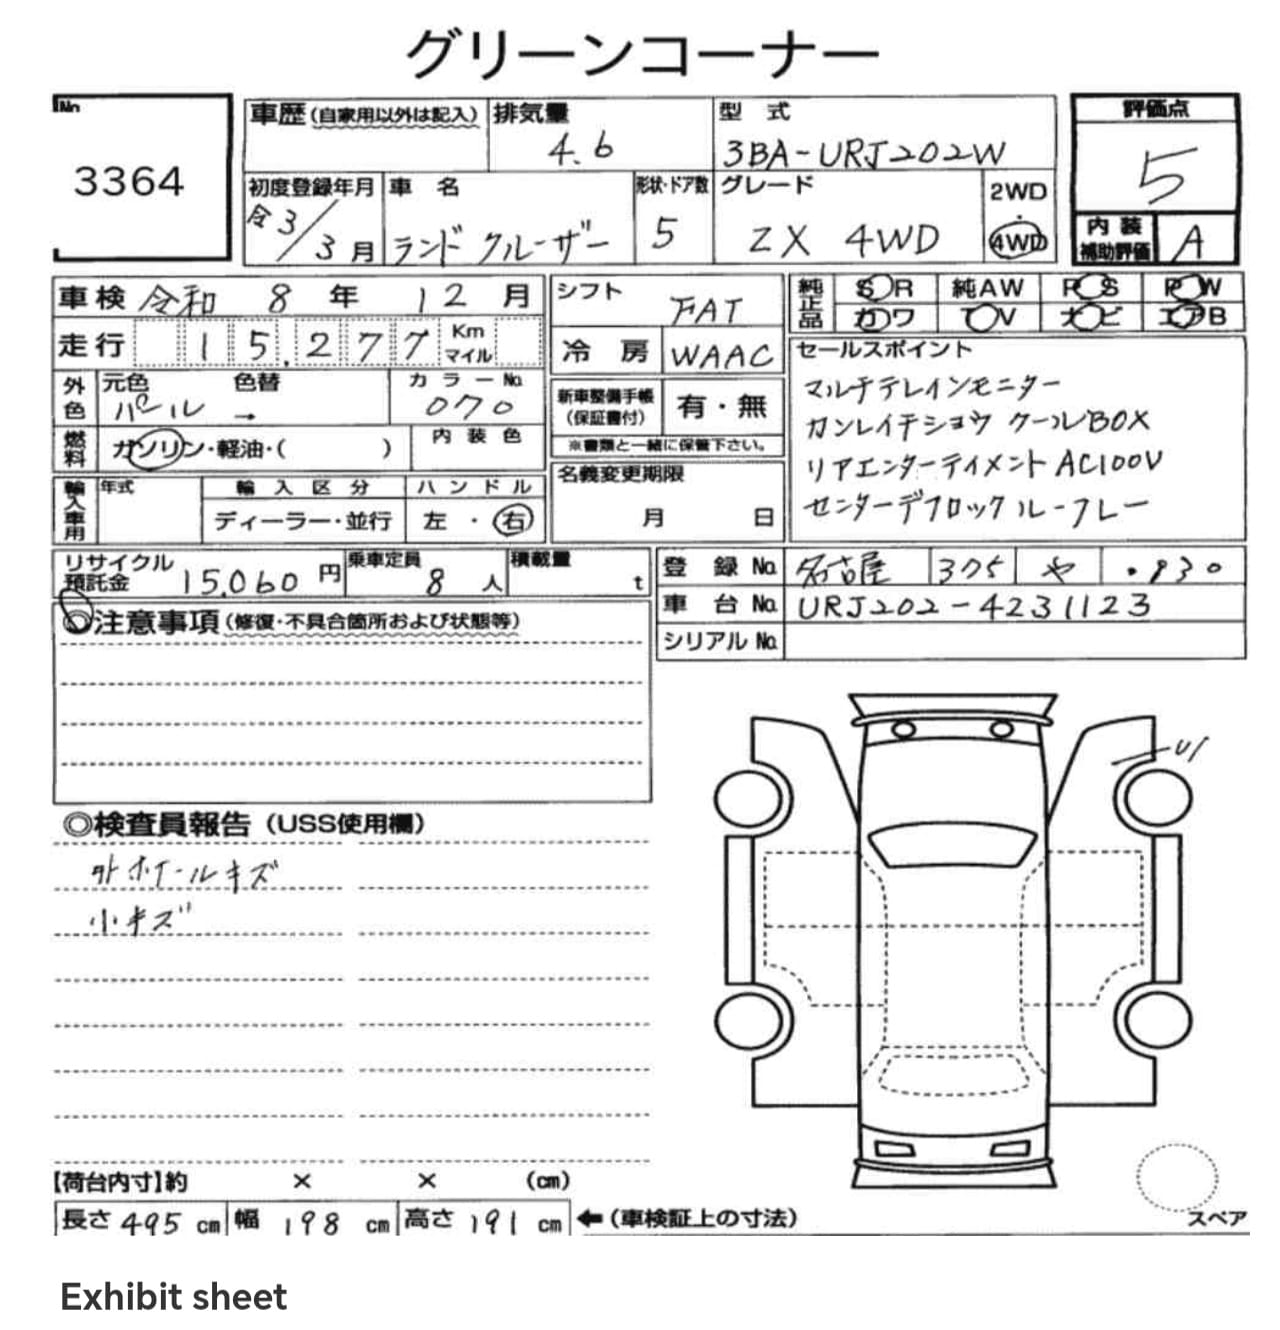 グリーンコーナー
No.
3364
車歴(自家用以外は記入)
排気量
4.6
型 式
3BA-URJ202W
評価点
5
初度登録年月
令3/3月
車 名
ランドクルーザー
形状・ドア数
5
グレード
ZX 4WD
2WD
・
4WD
内装
補助評価
A
車検 令和 8年 12月
シフト
FAT
純正品
SR 純AW PS PW
カワ TV ナビ エアB
走行 15,277 Km マイル
冷 房
WAAC
セールスポイント
マルチテレインモニター
カンレイチショウ クールBOX
リアエンターテイメント AC100V
センターデフロック ルーフレー
外色
元色 色替
パール →
カラーNo.
070
新車整備手帳
(保証書付)
有・無
※書類と一緒に保管下さい。
燃料
ガソリン・軽油・( )
内装色
名義変更期限
月 日
輸入車用
年式
輸入区分
ディーラー・並行
ハンドル
左・右
リサイクル
預託金 15,060円
乗車定員
8人
積載量
t
登 録 No. 名古屋 305 や ・830
車 台 No. URJ202-4231123
シリアル No.
◎注意事項(修復・不具合箇所および状態等)
U1
◎検査員報告(USS使用欄)
外ホイールキズ
小キズ
【荷台内寸】約 × × (cm)
長さ 495 cm 幅 198 cm 高さ 191 cm ←(車検証上の寸法)
スペア
Exhibit sheet